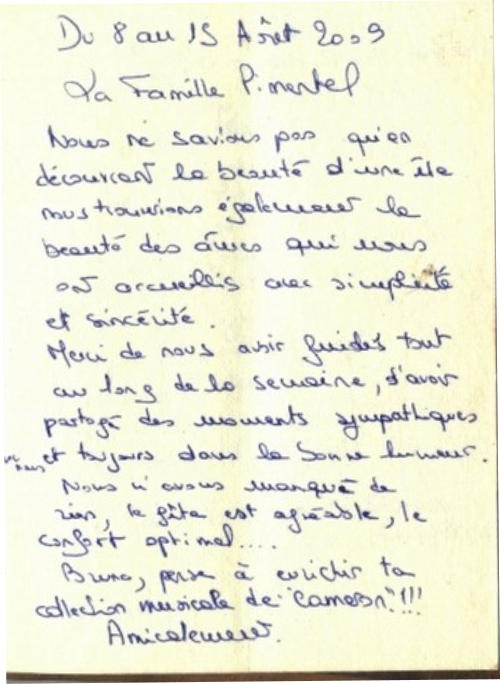 Du 8 au 15 Août 2009
La Famille Pimentel
Nous ne savions pas qu'en
découvrant la beauté d'une île
nous trouvions également la
beauté des âmes qui nous
ont accueillis avec simplicité
et sincérité.
Merci de nous avoir guidés tout
au long de la semaine, d'avoir
partagé des moments sympathiques
et toujours dans la bonne humeur.
Nous n'avons manqué de
rien, le gîte est agréable, le
confort optimal....
Bruno, pense à enrichir ta
collection musicale de "Cameron"!!!
Amicalement.